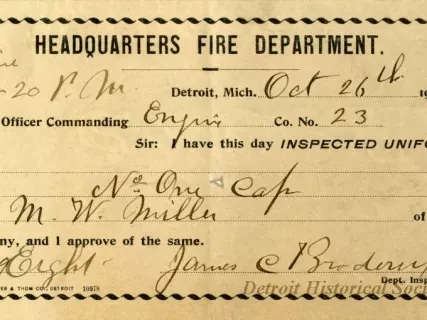 HEADQUARTERS FIRE DEPARTMENT.
-20 P.M Detroit, Mich. Oct 26th 19
Officer Commanding Engin Co. No. 23
Sir: I have this day INSPECTED UNIFO
No One Cap
M. W. Miller of
ny, and I approve of the same.
Eight- James C Broderi
Dept. Insp
& THOM CO. DETROIT 10978
Detroit Historical Soci